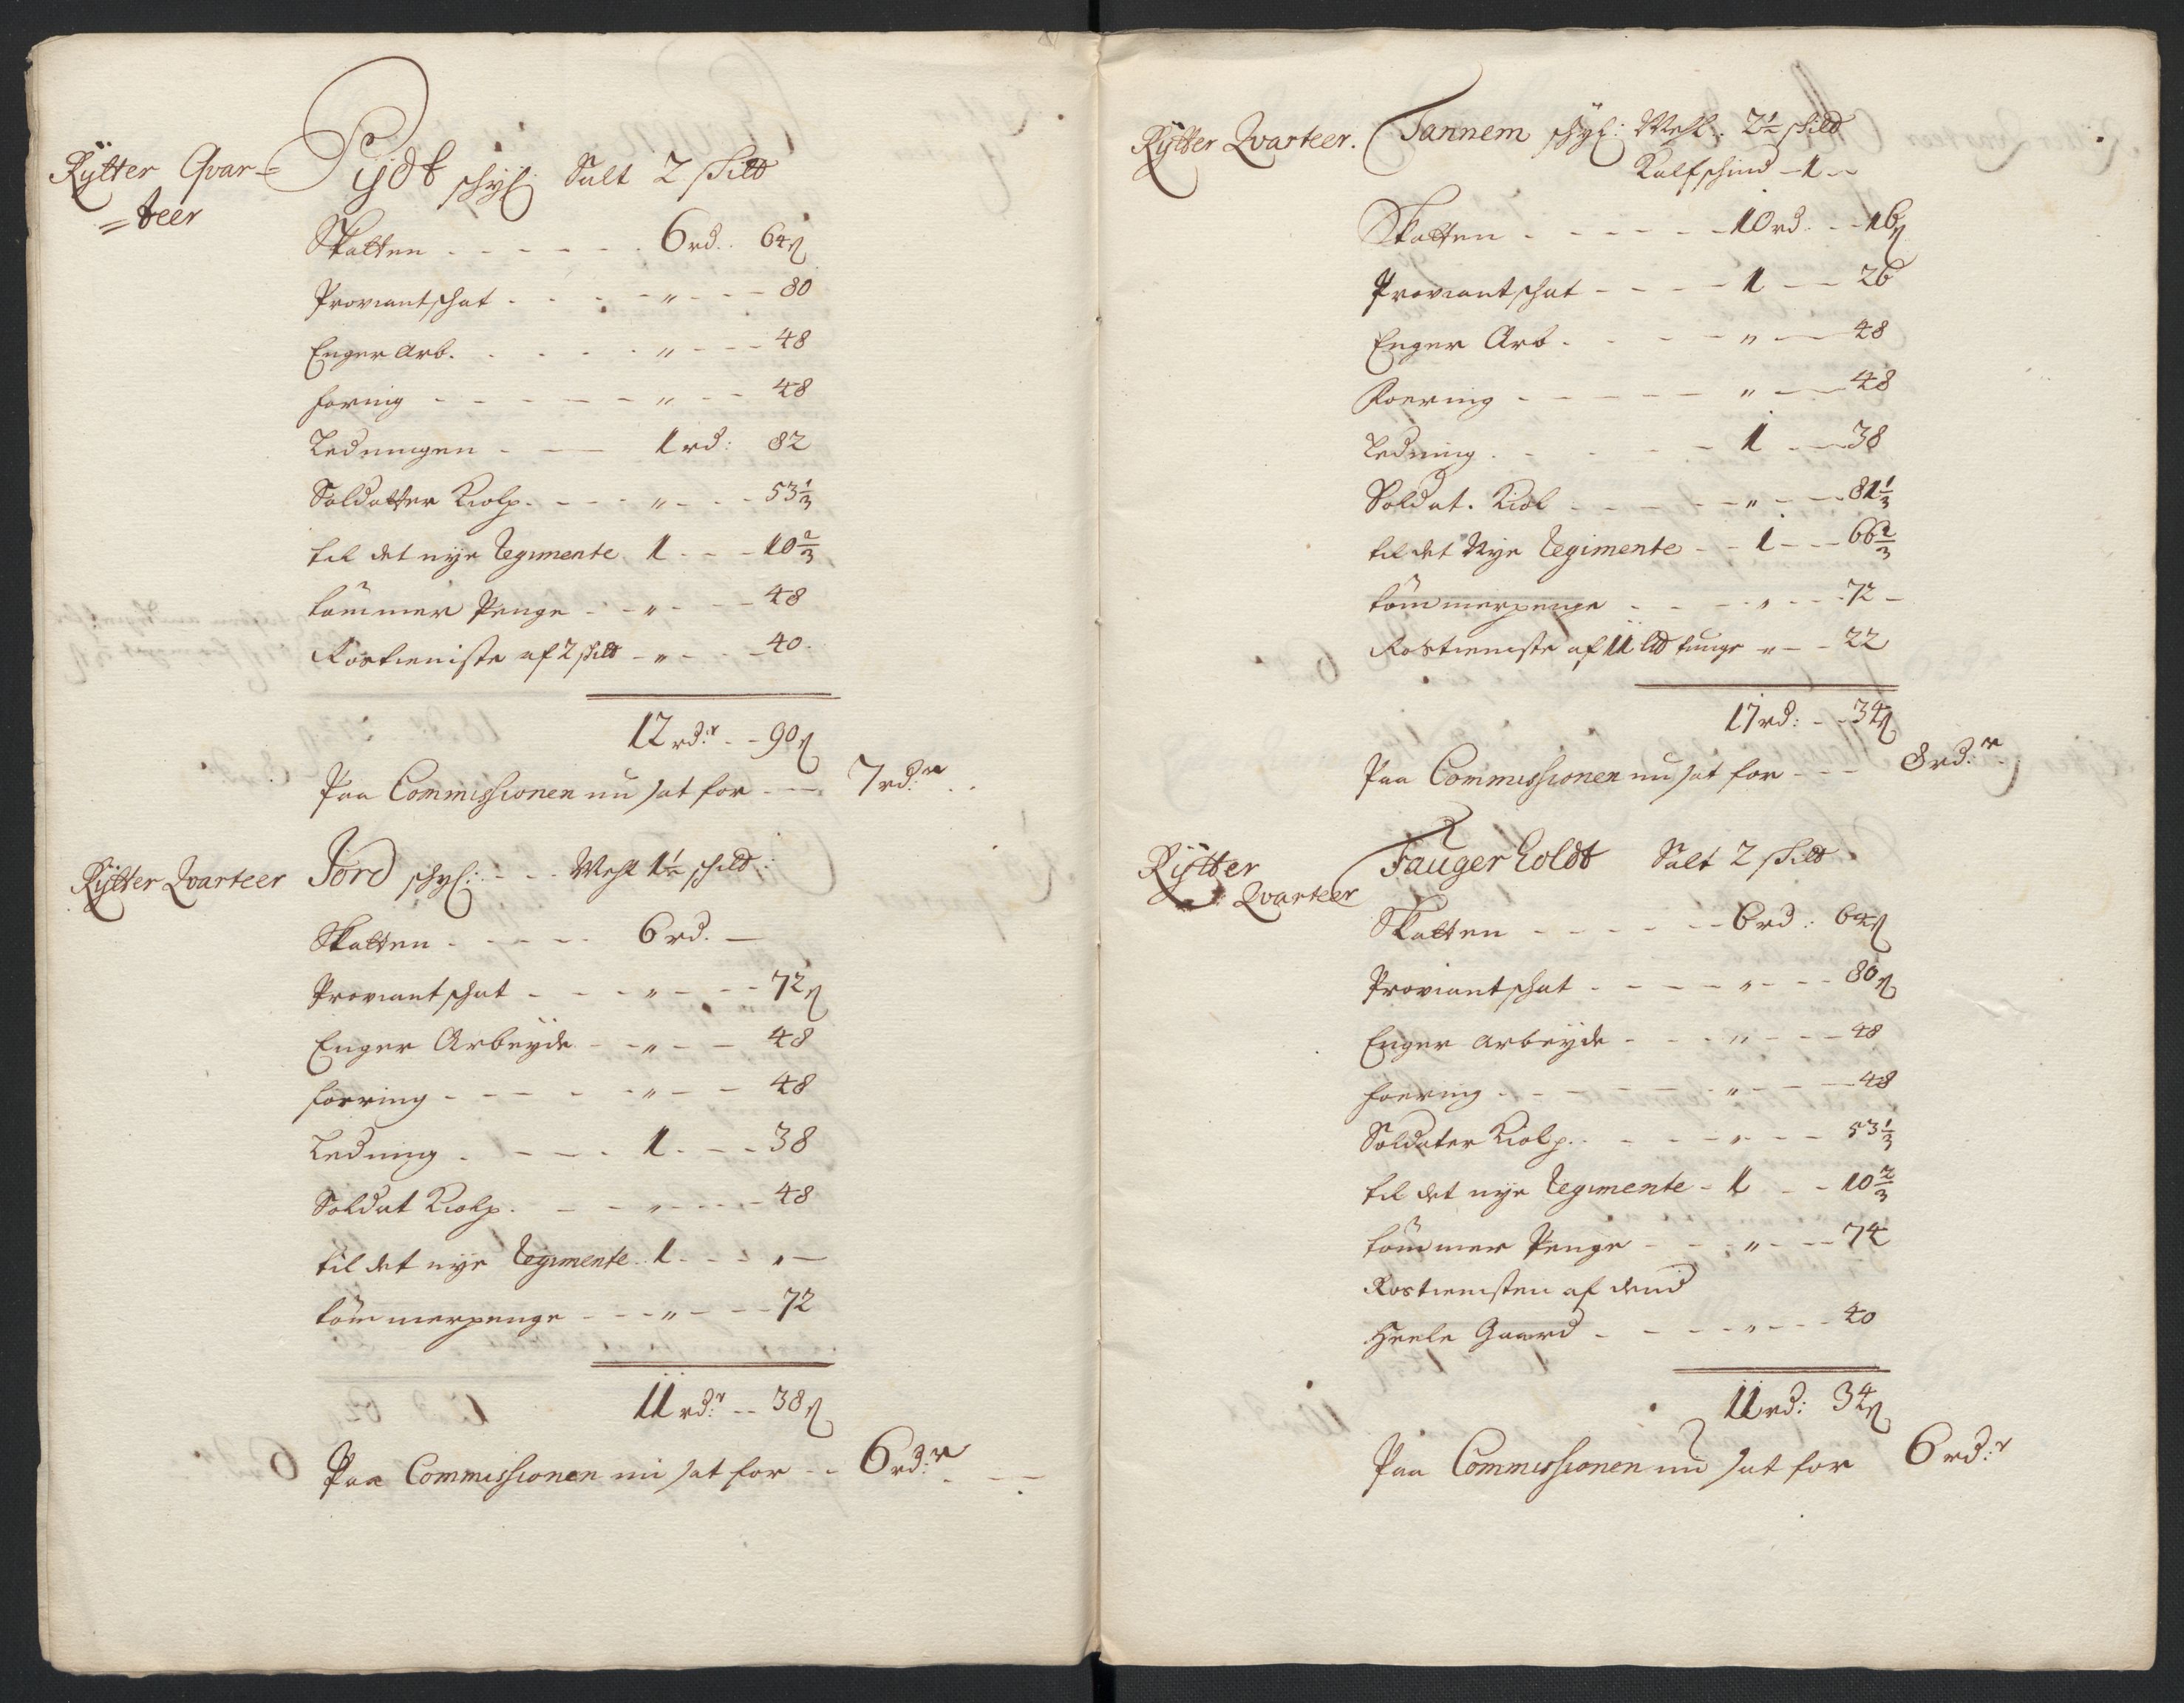 Rÿtter Qvar=
=teer
Pijdt schÿl: Salt 2 skild
Skatten - - - 6 rd. 64 ß
Proviantschat - - - " - - 80
Enger Arb. - - - " - - 48
foring - - - " - - 48
Ledningen - - 1 rd: 82
Soldatter Kiolp. - - " - - 53 1/3
til det nye Regimente 1 - - 10 2/3
tömmer Penge - - " - - 48
Rostieniste af 2 skild - " - - 40
12 rd:r - - 90 ß
Paa Commissionen nu sat for - - 7 rd:r
Rÿtter Qvarteer
Jord schÿl: - - Mehl 1 1/2 schild:
Skatten - - - 6 rd. -
Proviantschat - - - " - - 72 ß
Enger Arbeyde - - " - - 48
foering - - - " - - 48
Ledning - - - 1 - - 38
Soldat Kiolp. - - " - - 48
til det nye Regimente 1 - - " -
tömmerpenge - - - " - - 72
11 rd:r - - 38 ß
Paa Commissionen nu sat for - - 6 rd:r
Rÿtter Qvarteer.
Tannem schÿl: Mehl. 2 1/2 skild
Kalfschind - 1 - -
Skatten - - - 10 rd. - - 16 ß
Proviantschat - - - 1 - - 26
Enger Arb - - - " - - 48
Foering - - - " - - 48
Ledning - - - 1 - - 38
Soldat. Kiol - - - " - - 81 1/3
til det Nye Regimente - - 1 - - 66 2/3
tömmerpenge - - - " - - 72 -
Rostieniste af 11 lld tunge " - - 22
17 rd: - - 34 ß
Paa Commissionen nu sat for - - - 8 rd:r
Rÿtter
Qvarteer
Fauger Eoldt Salt 2 skild
Skatten - - - 6 rd: 64 ß
Proviantschat - - - " - - 80 ß
Enger arbeyde - - - " - - 48
foering - - - " - - 48
Soldater Kiolp. - - - " - - 53 1/3
til det nye Regimente - 1 - - 10 2/3
tömmer Penge - - - " - - 74
Rostienisten af dend
Heele Gaard - - - " - - 40
11 rd: 34 ß
Paa Commissionen nu sat for 6 rd:r